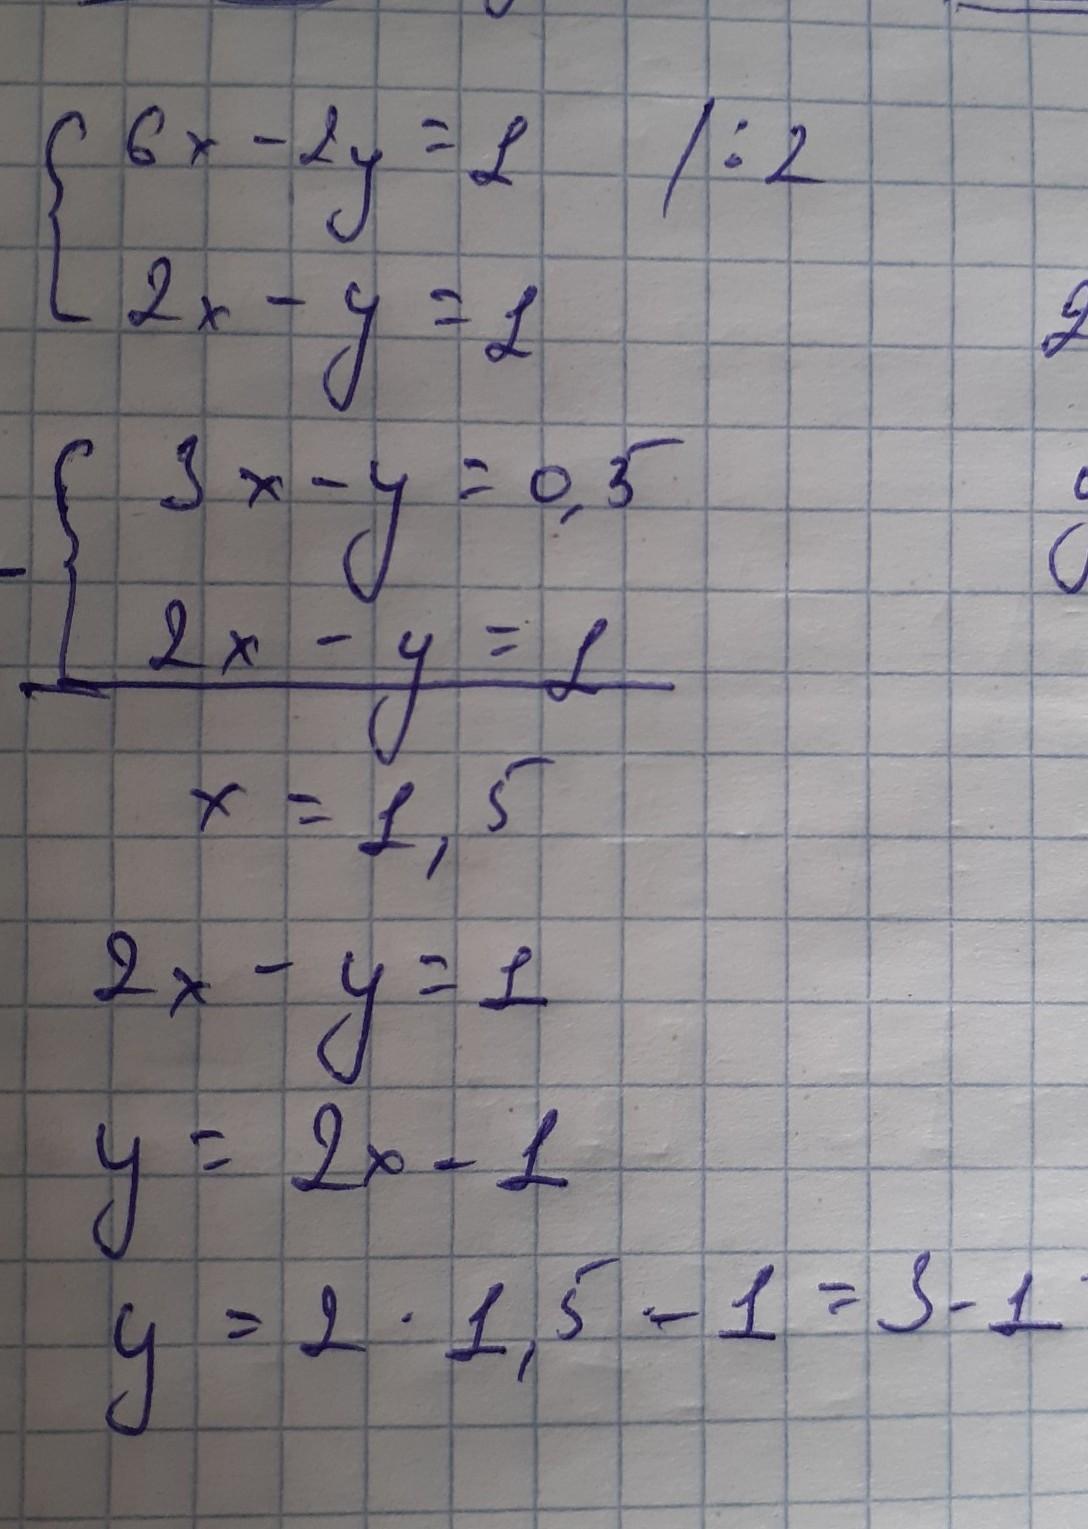 6x - 2y = 1 / : 2
2x - y = 1
3x - y = 0,5
- 2x - y = 1
x = 1,5
2x - y = 1
y = 2x - 1
y = 2 · 1,5 - 1 = 3 - 1